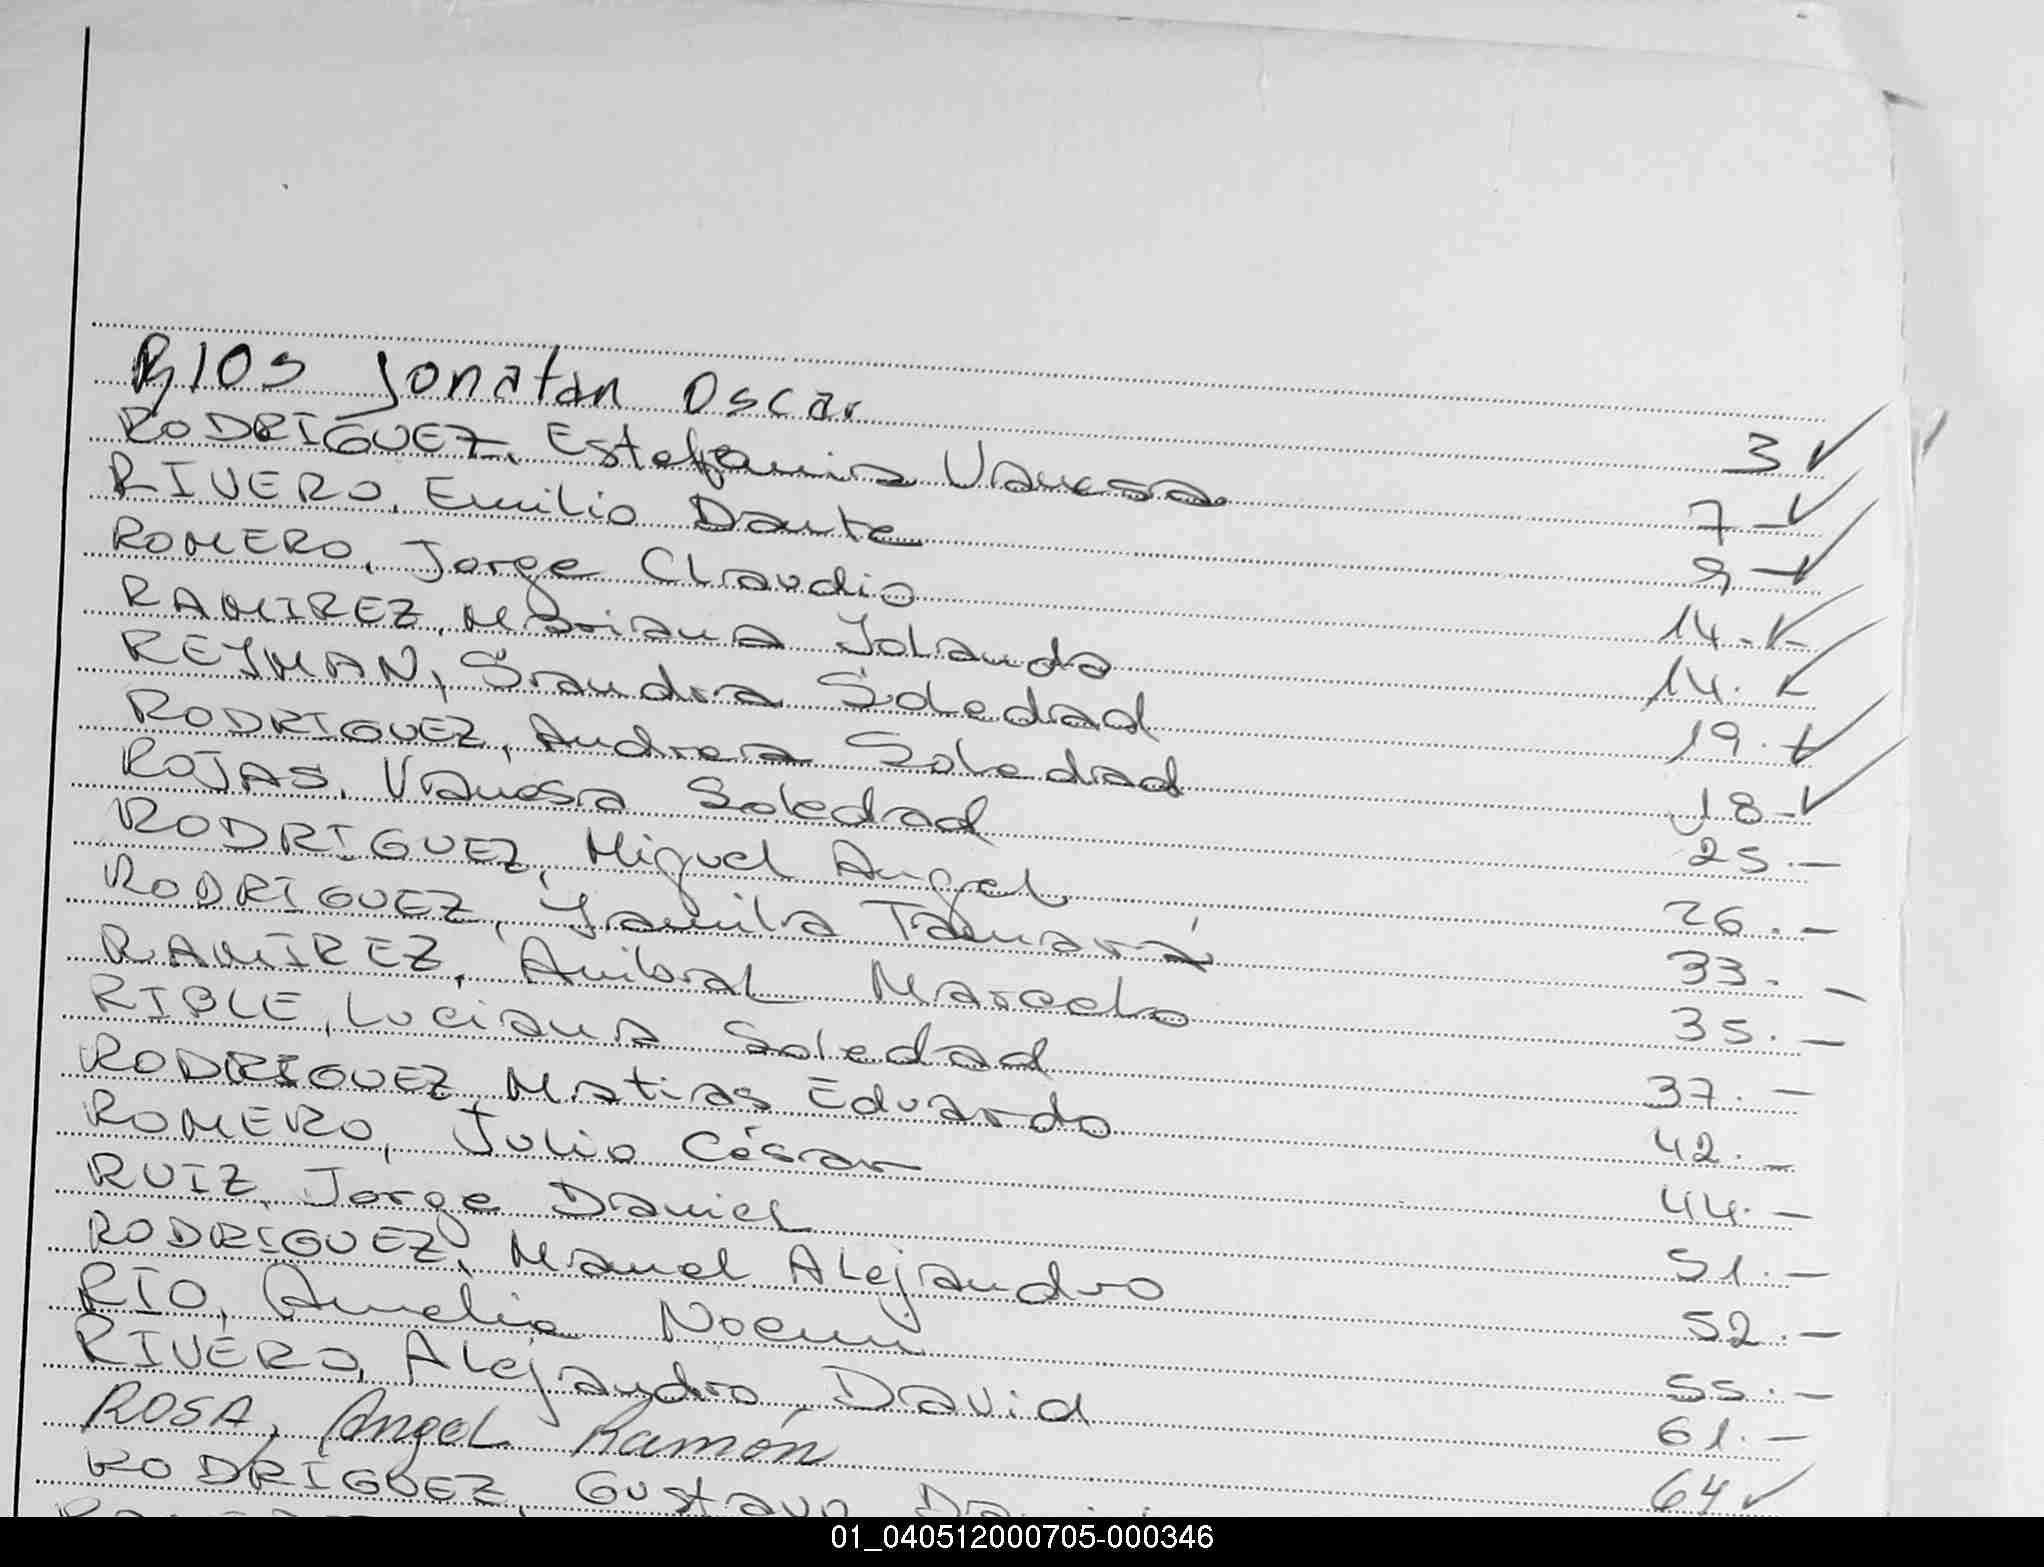 RIOS Jonatan Oscar 3 ✓
RODRIGUEZ, Estefania Vanesa 7 - ✓
RIVERO, Emilio Dante 9 - ✓
ROMERO, Jorge Claudio 14.- ✓
RAMIREZ, Mariana Yolanda 14.- ✓
REYMAN, Sandra Soledad 19.- ✓
RODRIGUEZ, Andrea Soledad 18 - ✓
ROJAS, Vanesa Soledad 25.-
RODRIGUEZ, Miguel Angel 26.-
RODRIGUEZ, Yamila Tamara 33.-
RAMIREZ, Anibal Marcelo 35.-
RIBLE, Luciana Soledad 37.-
RODRIGUEZ, Matias Eduardo 42.-
ROMERO, Julio César 44.-
RUIZ, Jorge Daniel 51.-
RODRIGUEZ, Manuel Alejandro 52.-
RIO, Amelia Noemi 55.-
RIVERO, Alejandro David 61.-
ROSA, Angel Ramón 64 ✓
RODRIGUEZ, Gustavo
01_040512000705-000346